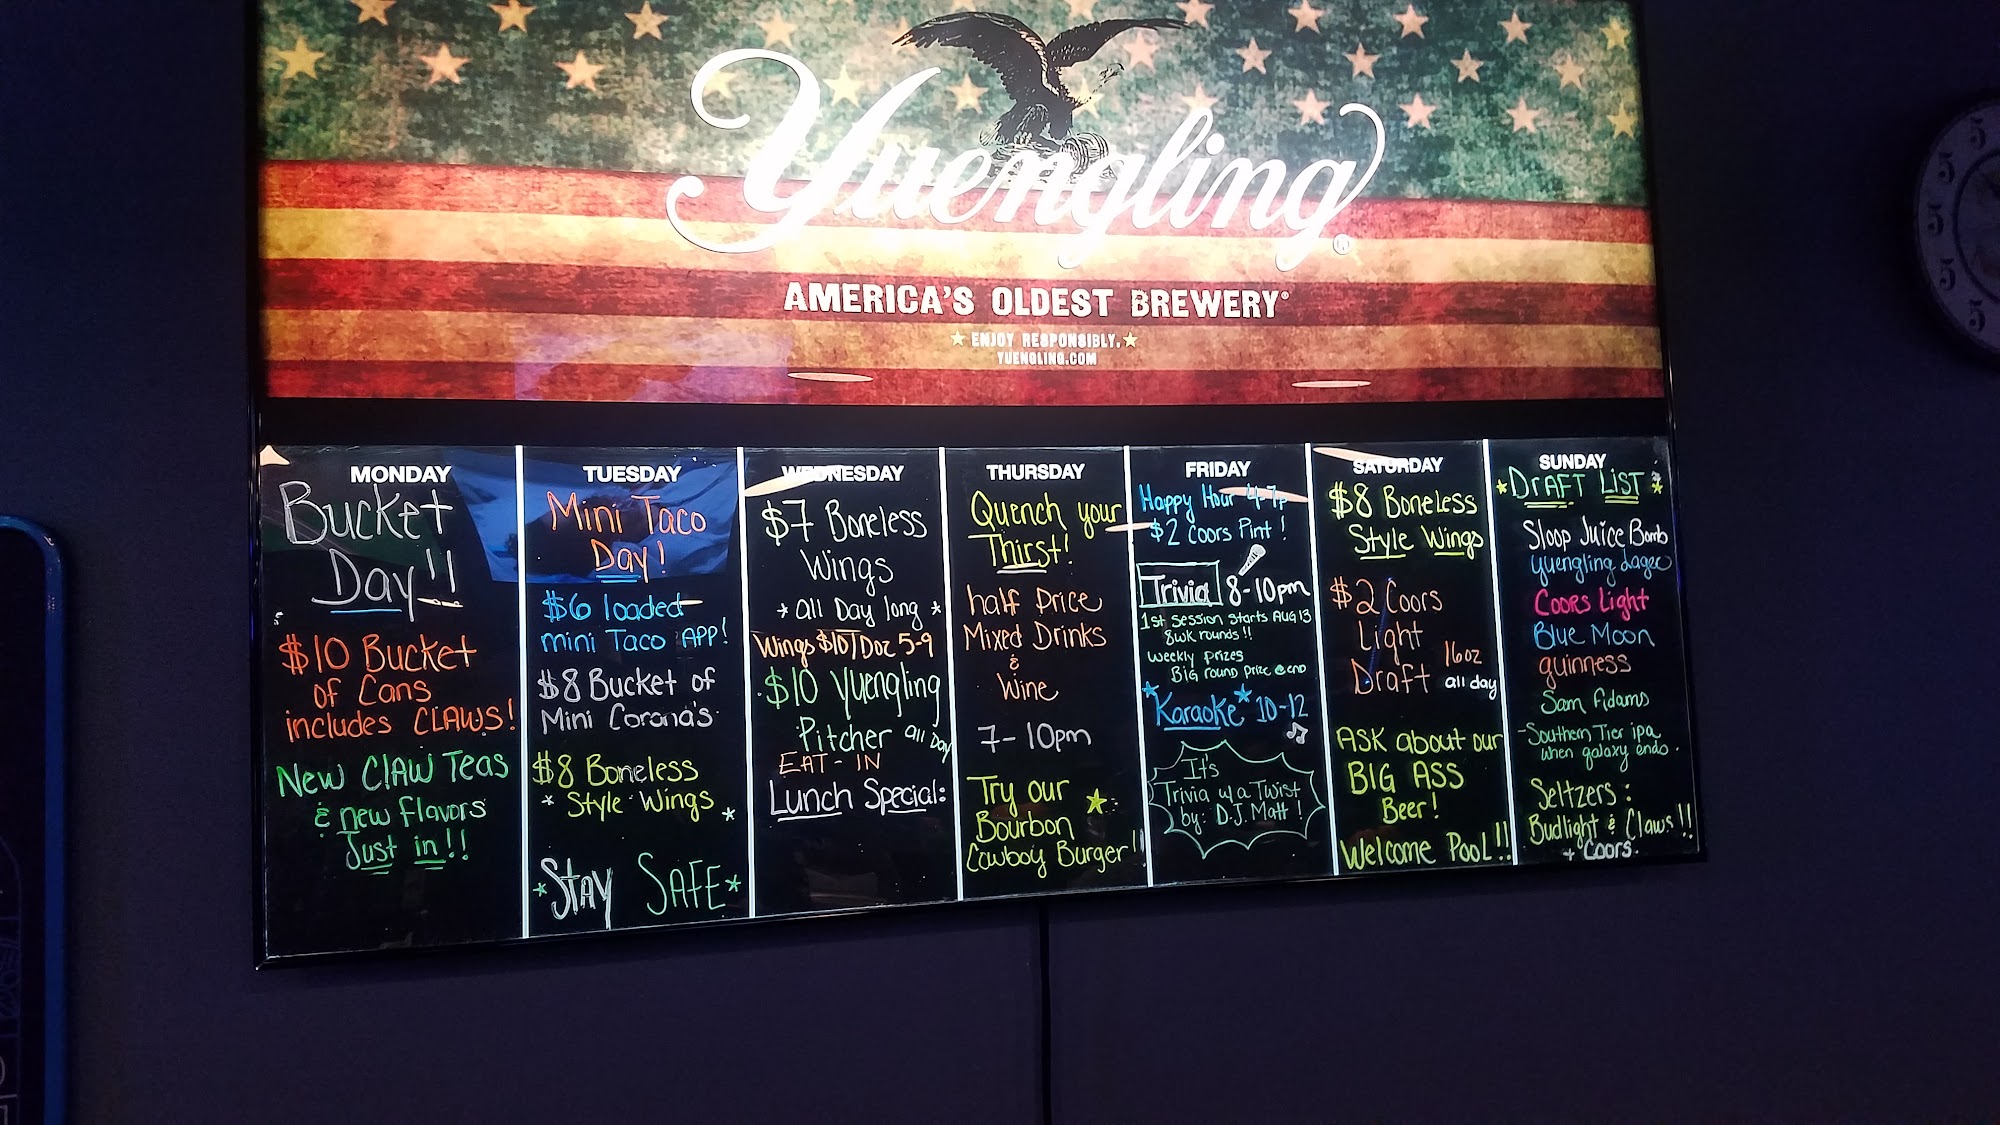 Yuengling®
AMERICA'S OLDEST BREWERY®
ENJOY RESPONSIBLY.
YUENGLING.COM
MONDAY
Bucket
Day!!
$10 Bucket
of Cans
includes CLAWS!
New ClAW Teas
& new Flavors
Just in!!
TUESDAY
Mini Taco
Day!
$6 loaded
mini Taco APP!
$8 Bucket of
Mini Corona's
$8 Boneless
* Style Wings *
*Stay SAFE*
WEDNESDAY
$7 Boneless
Wings
* all Day long *
Wings $10/Doz 5-9
$10 Yuengling
Pitcher all Day
EAT-IN
Lunch Special:
THURSDAY
Quench your
Thirst!
half Price
Mixed Drinks
&
Wine
7-10pm
Try our
Bourbon
Cowboy Burger!
FRIDAY
Happy Hour 4-7p
$2 Coors Pint!
Trivia 8-10pm
1st session starts AUG 13
8wk rounds!!
weekly prizes
BIG round prize @ end
*Karaoke* 10-12
It's
Trivia w/a Twist
by: D.J. Matt!
SATURDAY
$8 Boneless
Style Wings
$2 Coors
Light
Draft 16oz
all day
ASK about our
BIG ASS
Beer!
Welcome POOL!!
SUNDAY
*DrAFT LiST*
Sloop Juice Bomb
Yuengling Lager
Coors Light
Blue Moon
guinness
Sam Adams
-Southern Tier ipa
when galaxy ends.
Seltzers:
Budlight & Claws!!
+ Coors.
5
5
5
5
5